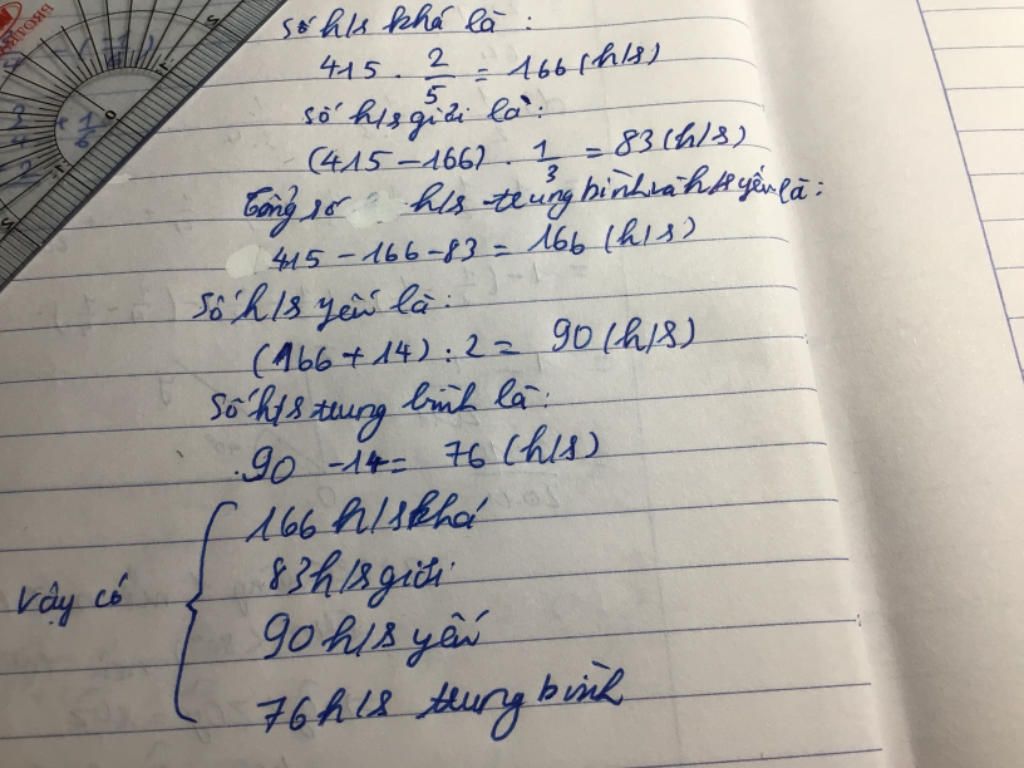 Số h/s khá là :
415 . 2/5 = 166 (h/s)
Số h/s giỏi là :
(415 - 166) . 1/3 = 83 (h/s)
Tổng số h/s trung bình và h/s yếu là :
415 - 166 - 83 = 166 (h/s)
Số h/s yếu là :
(166 + 14) : 2 = 90 (h/s)
Số h/s trung bình là :
90 - 14 = 76 (h/s)
166 h/s khá
83 h/s giỏi
Vậy có
90 h/s yếu
76 h/s trung bình